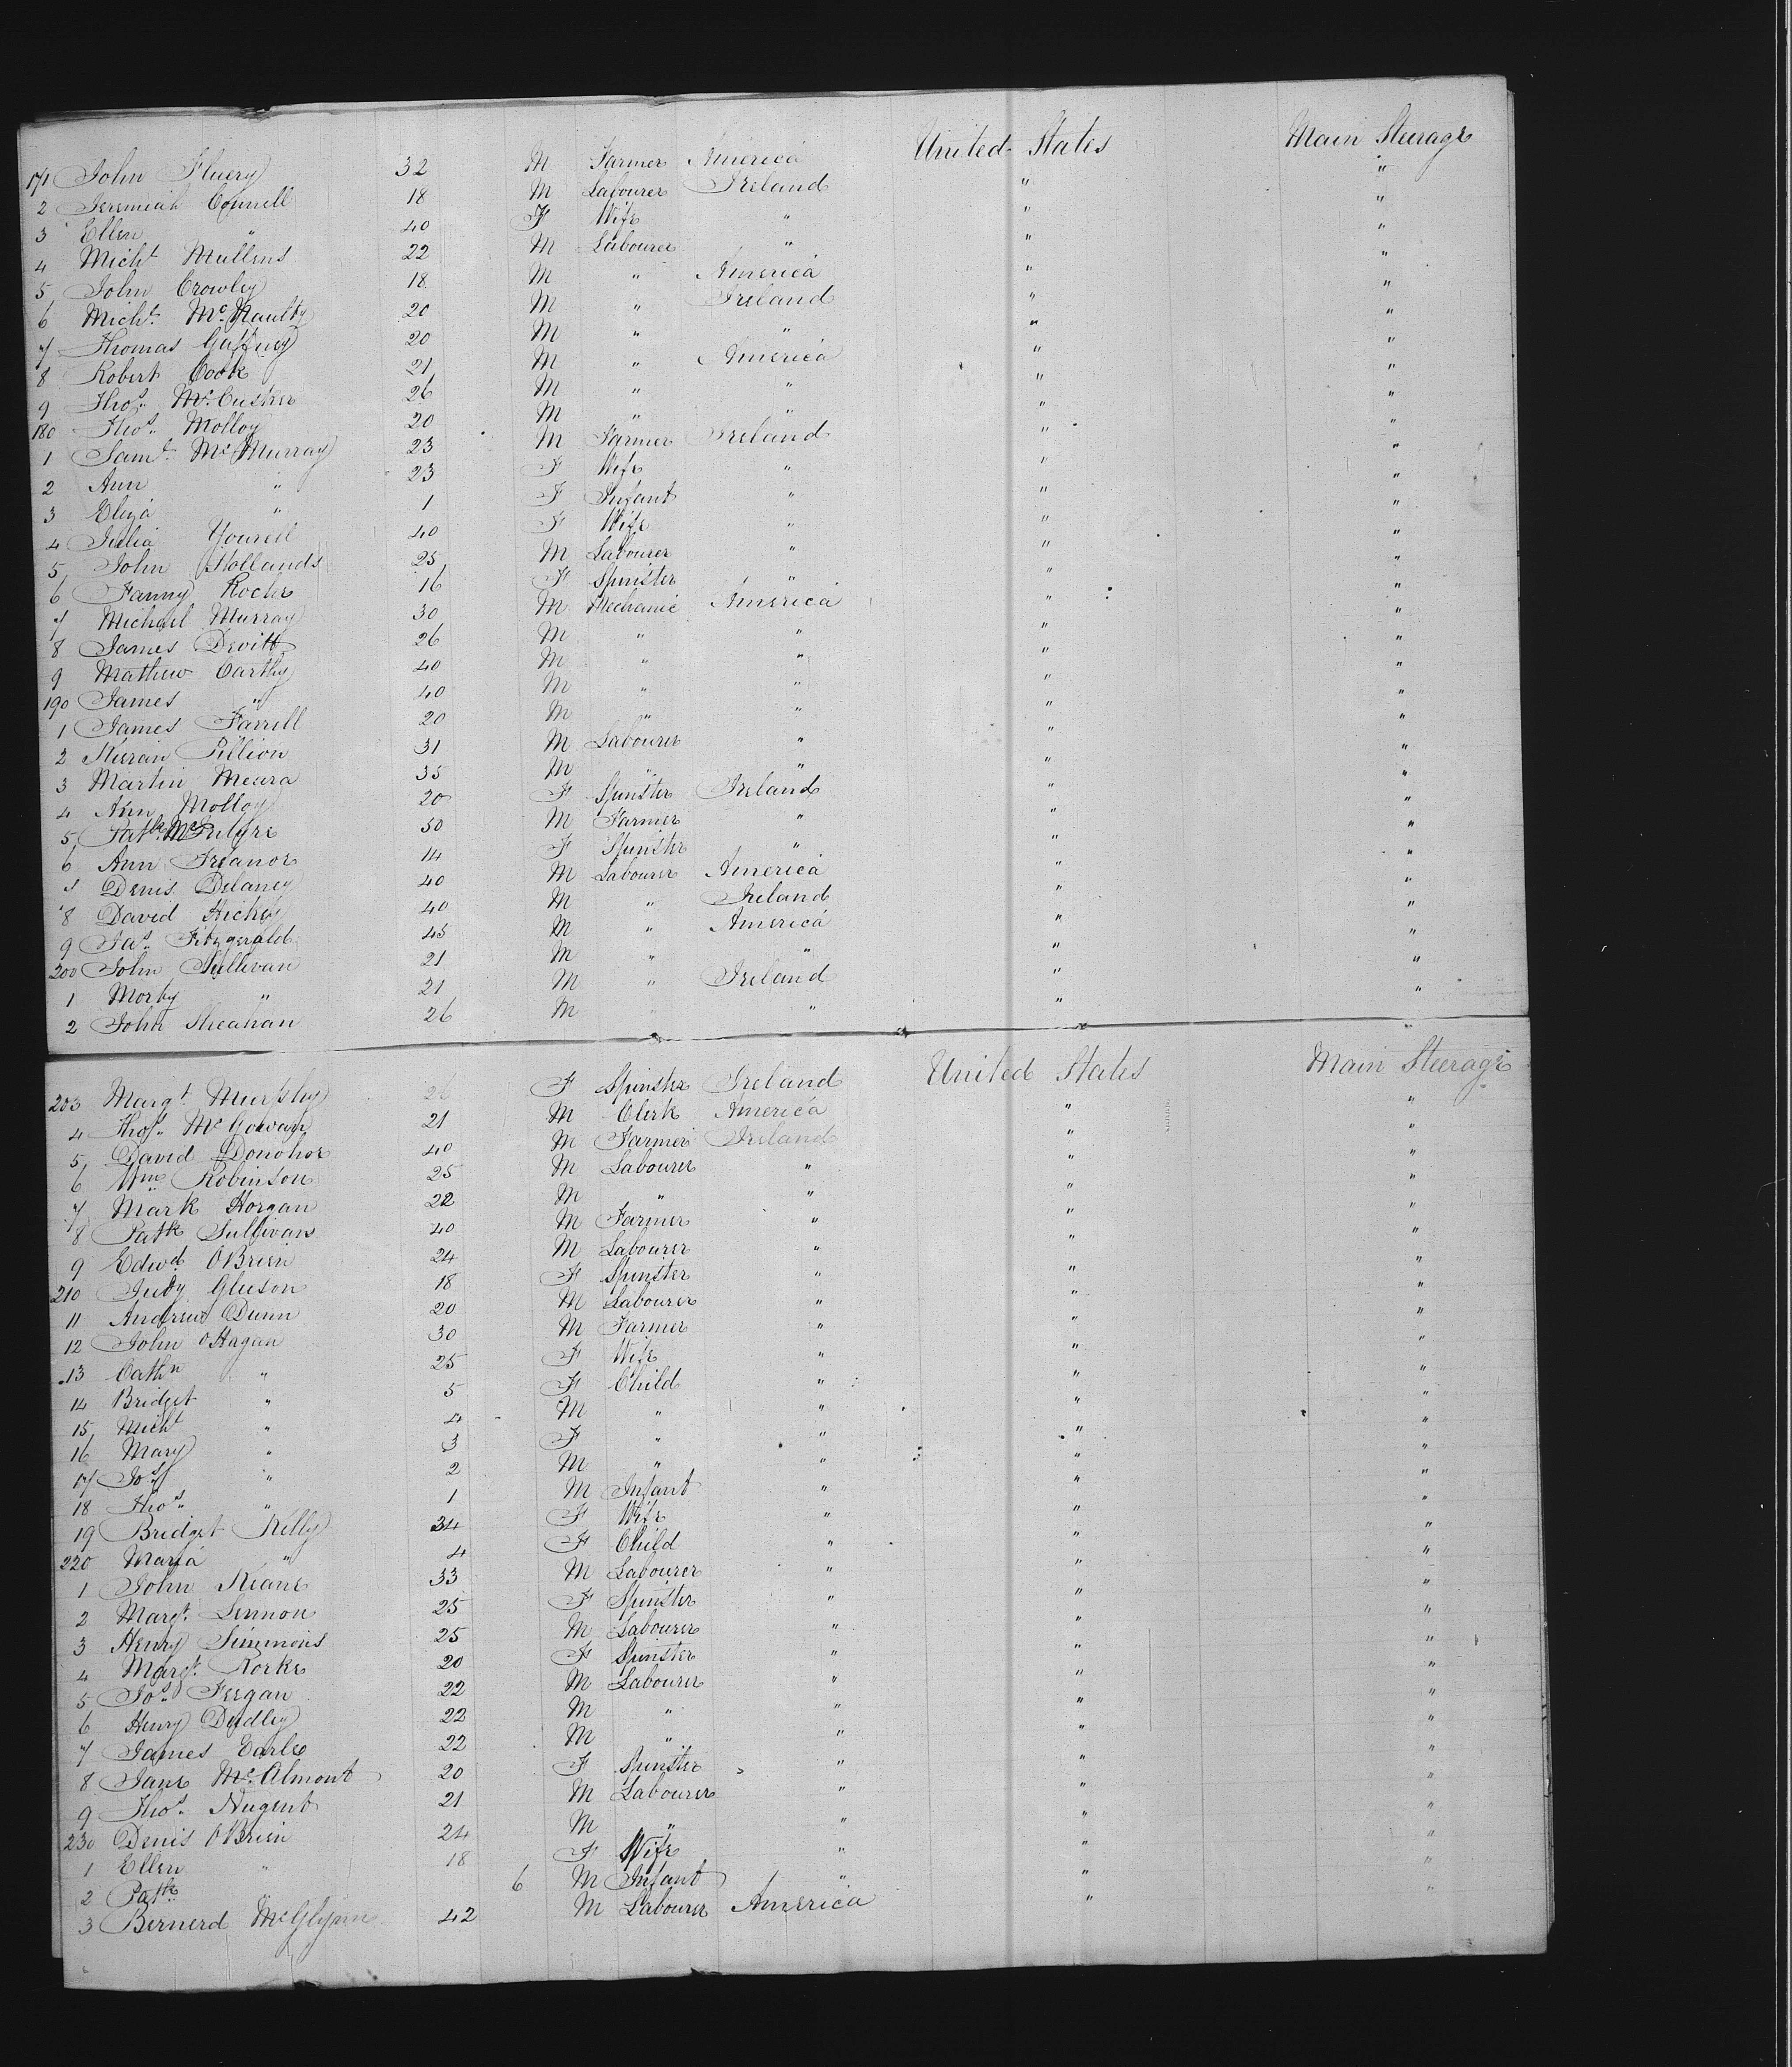 171 John Fluery 32 M Farmer America United States Main Steerage
2 Jeremiah Connell 18 M Labourer Ireland " "
3 Ellen " 40 F Wife " " "
4 Michl Mullens 22 M Labourer " " "
5 John Crowley 18 M " America " "
6 Michl. McNaulty 20 M " Ireland " "
7 Thomas Gaffney 20 M " " " "
8 Robert Cook 21 M " America " "
9 Thos. McCusker 26 M " " " "
180 Thos. Molloy 20 M " " " "
1 Saml. McMurray 23 M Farmer Ireland " "
2 Ann " 23 F Wife " " "
3 Eliza " 1 F Infant " " "
4 Julia Yourell 40 F Wife " " "
5 John Hollands 25 M Labourer " " "
6 Fanny Roche 16 F Spinster " " "
7 Michael Murray 30 M Mechanic America " "
8 James Devitt 26 M " " " "
9 Mathew Carthy 40 M " " " "
190 James " 40 M " " " "
1 James Farrell 20 M " " " "
2 Kieran Pillion 31 M Labourer " " "
3 Martin Meara 35 M " " " "
4 Ann Molloy 20 F Spinster Ireland " "
5 Patk. 50 M Farmer " " "
6 Ann Treanor 14 F Spinster " " "
7 Denis Delaney 40 M Labourer America " "
8 David Hickey 40 M " Ireland " "
9 Jas. Fitzgerald 45 M " America " "
200 John Sullivan 21 M " " " "
1 Morty " 21 M " Ireland " "
2 John Sheahan 26 M " " " "
203 Margt. Murphy 26 F Spinster Ireland United States Main Steerage
4 Thos. McGowan 21 M Clerk America " "
5 David Donohoe 40 M Farmer Ireland " "
6 Wm. Robinson 25 M Labourer " " "
7 Mark Horgan 22 M " " " "
8 Patk Sullivan 40 M Farmer " " "
9 Edwd OBrien 24 M Labourer " " "
210 Judy Gleeson 18 F Spinster " " "
11 Andrew Dunn 20 M Labourer " " "
12 John OHagan 30 M Farmer " " "
13 Cathn " 25 F Wife " " "
14 Bridget " 5 F Child " " "
15 Michl " 4 M " " " "
16 Mary " 3 F " " " "
17 Jos. " 2 M " " " "
18 Thos. " 1 M Infant " " "
19 Bridget Kelly 34 F Wife " " "
220 Maria " 4 F Child " " "
1 John Keane 33 M Labourer " " "
2 Margt. Lennon 25 F Spinster " " "
3 Henry Simmons 25 M Labourer " " "
4 Margt. Rorke 20 F Spinster " " "
5 Jos. Feegan 22 M Labourer " " "
6 Henry Dudley 22 M " " " "
7 James Earle 22 M " " " "
8 Jane McAlmont 20 F Spinster " " "
9 Thos. Nugent 21 M Labourer " " "
230 Denis OBrien 24 M " " " "
1 Ellen " 18 F Wife " " "
2 Patk. " 6 M Infant " " "
3 Bernerd McGlynn 42 M Labourer America " "